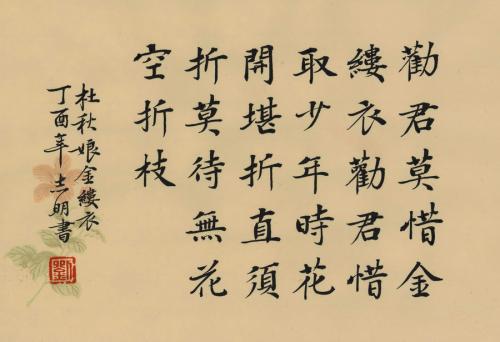 勸君莫惜金
縷衣勸君惜
取少年時花
開堪折直須
折莫待無花
空折枝
杜秋娘金縷衣
丁酉年志明書